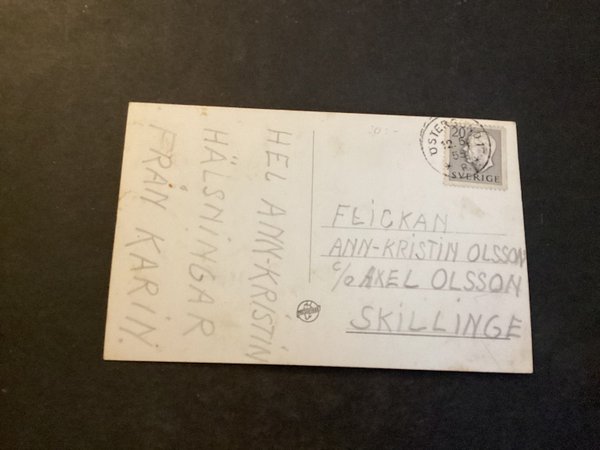 HEL ANN-KRISTIN
HÄLSNINGAR
FRÅN KARIN.
FLICKAN
ANN-KRISTIN OLSSON
C/O AXEL OLSSON
SKILLINGE
20
SVERIGE